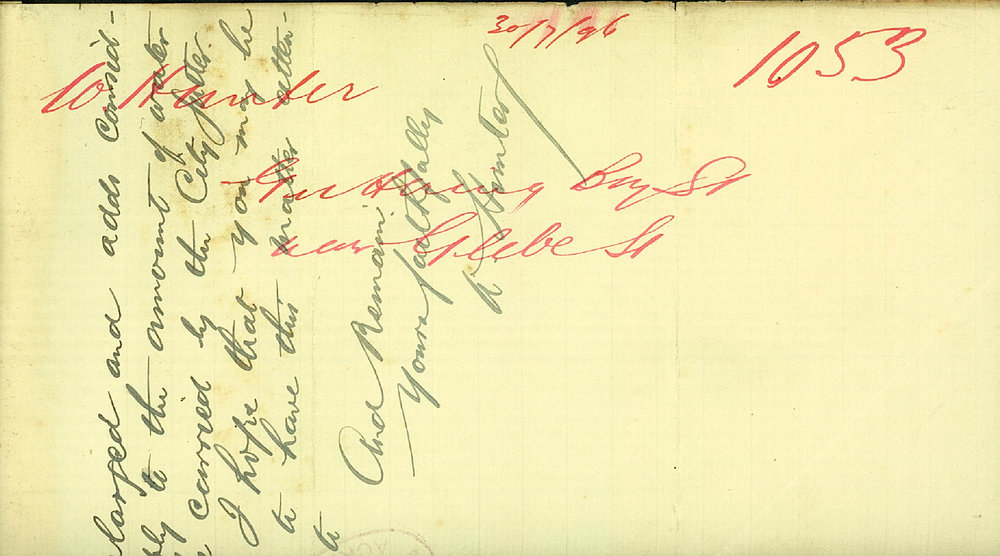 30/7/96
1053
W Hunter
Guttering Bay St
near Glebe St
larged and adds consid-
bly to the amount of water
carried by the City gutter.
I hope that you may be
to have this matter atten-
to
And Remain
Yours faithfully
W Hunter